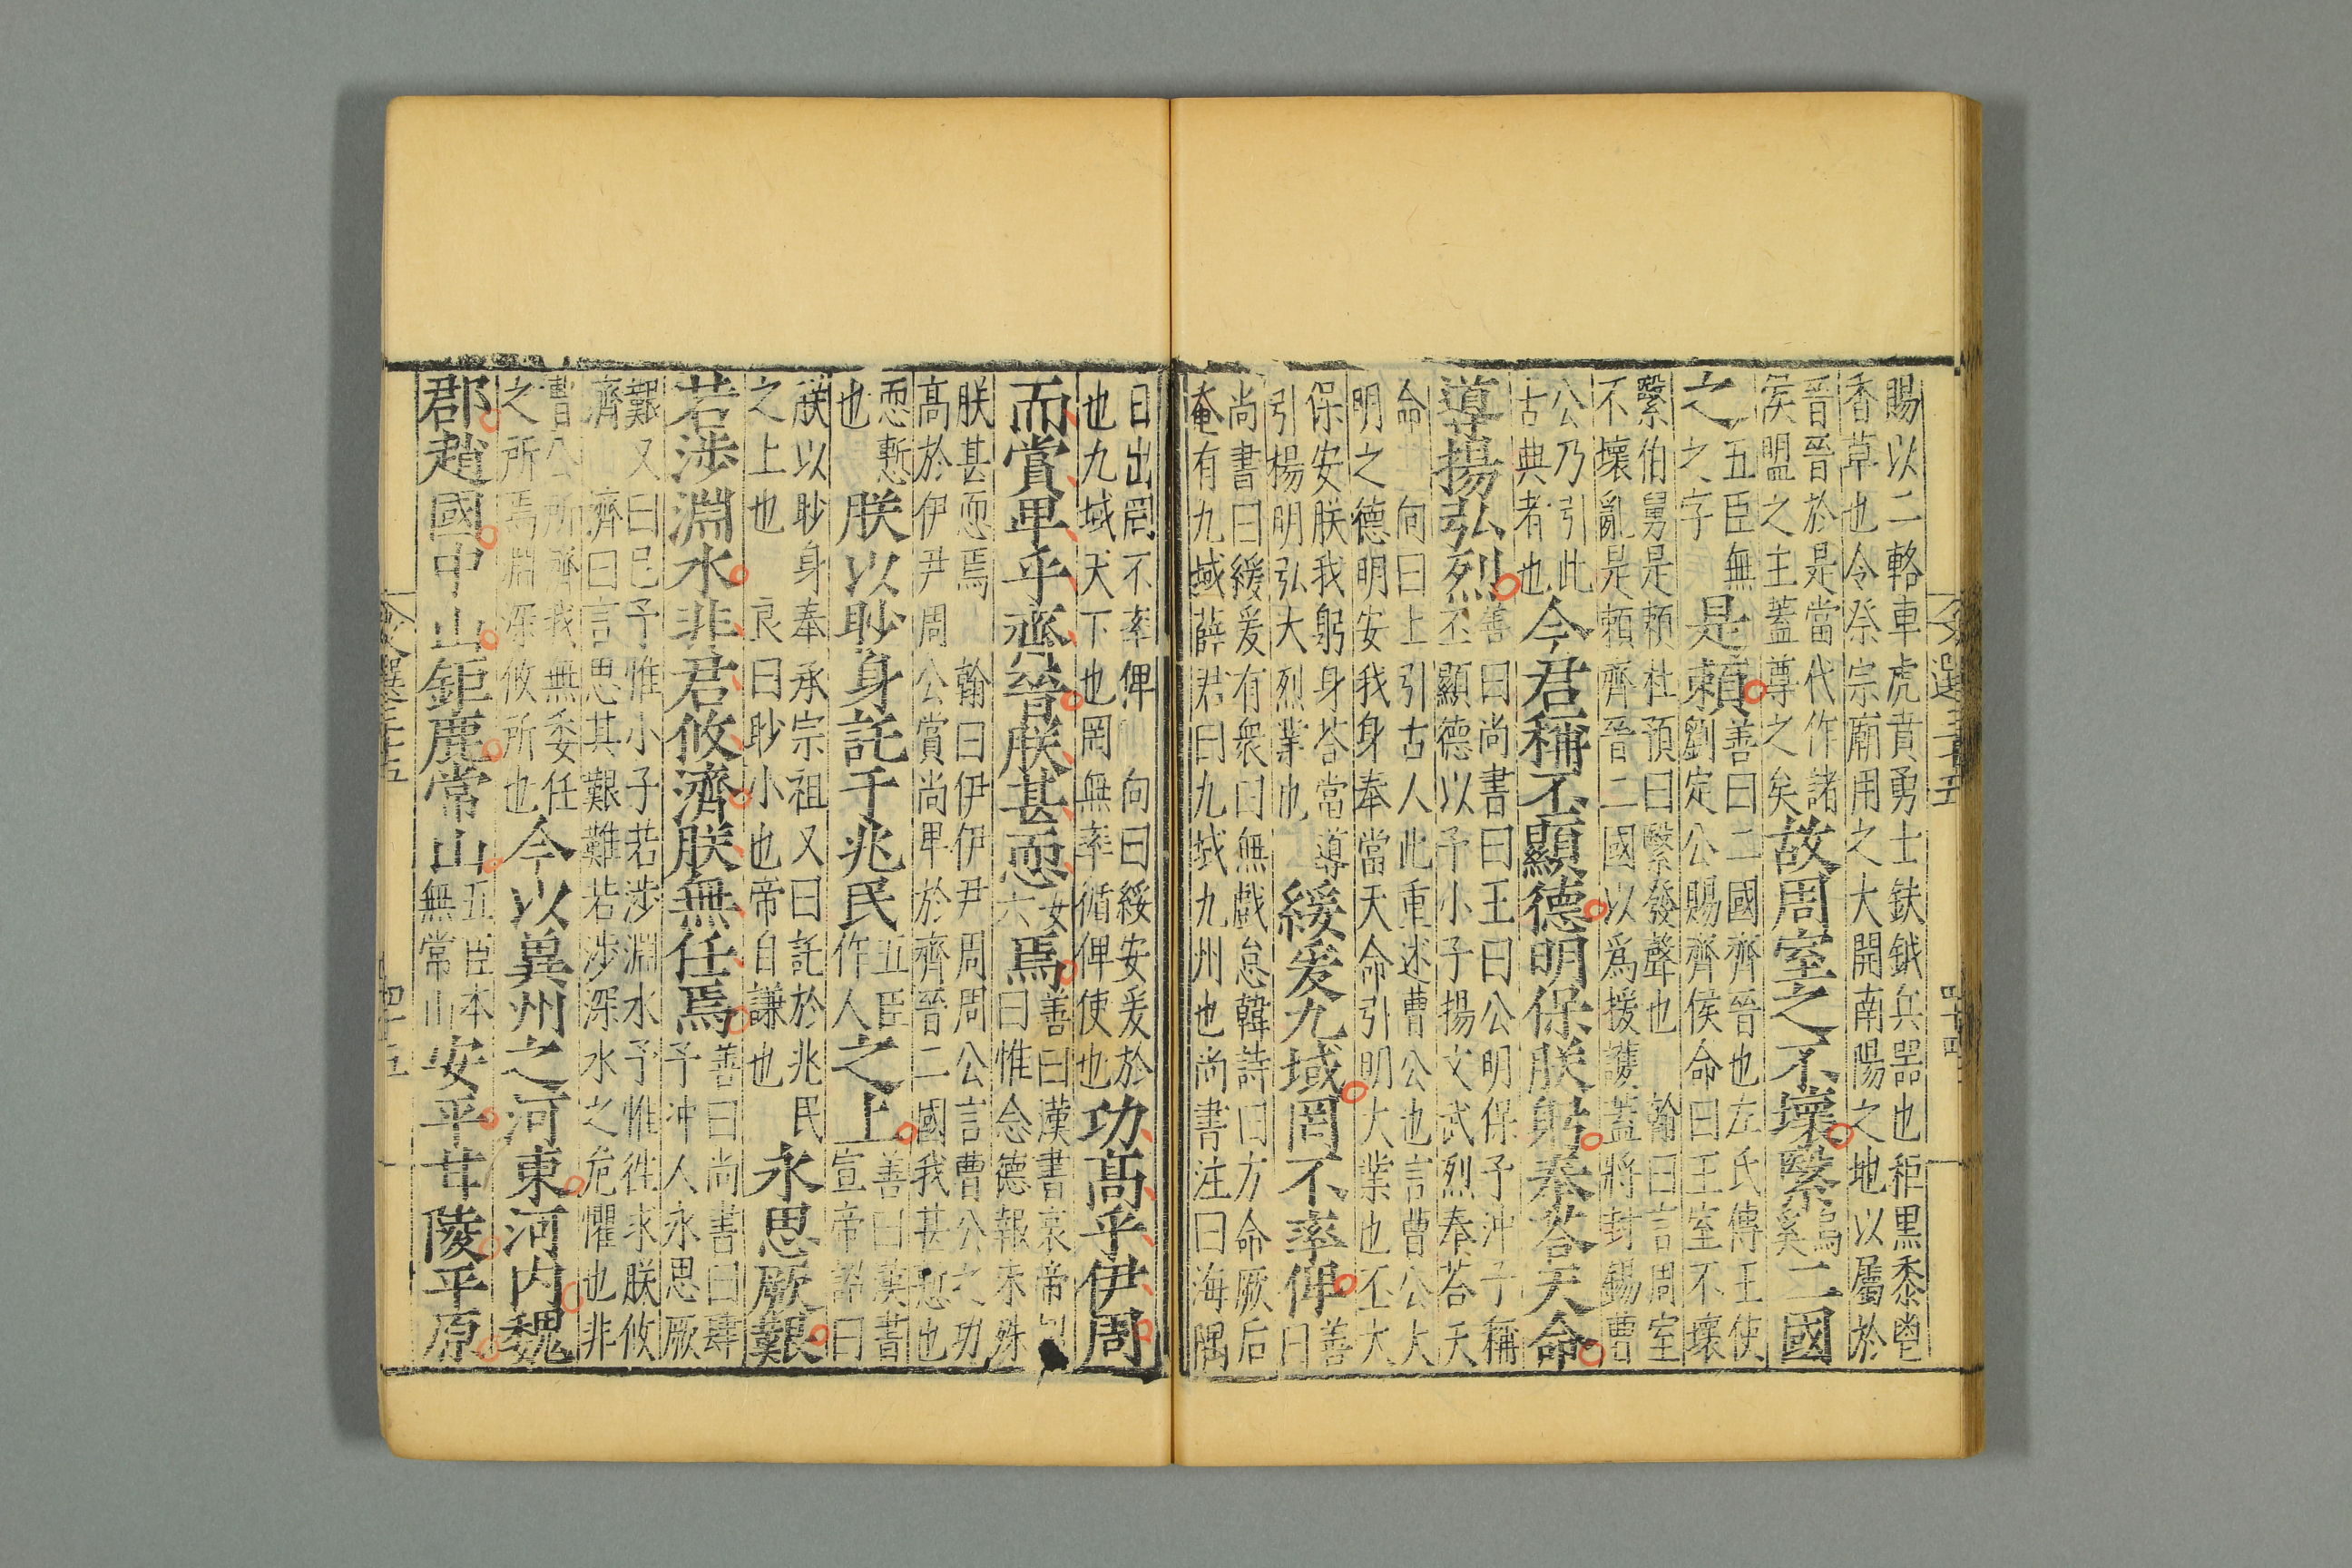 賜以二輅車虎賁勇士鈇鉞兵器也秬黒黍鬯
香草也令祭宗廟用之大開南陽之地以屬於
晉晉於是當代作諸
侯盟之主蓋尊之矣
故周室之不壞繄烏奚二國
五臣無
之之字
是賴善曰二國齊晉也左氏傳王使
劉定公賜齊侯命曰王室不壞
繄伯舅是賴杜預曰繄發聲也 翰曰言周室
不壞亂是賴齊晉二國以爲援護蓋將封錫曹
公乃引此
古典者也
今君稱丕顯德明保朕躬奉荅天命
導揚弘烈善曰尚書曰王曰公明保予沖子稱
丕顯德以予小子揚文武烈奉荅天
命 向曰上引古人此重述曹公也言曹公大
明之德明安我身奉當天命引明大業也丕大
保安朕我躬身荅當導
引楊明弘大烈業也
綏爰九域罔不率俾善
曰
尚書曰綏爰有衆曰無戲怠韓詩曰方命厥后
奄有九域薛君曰九域九州也尚書注曰海隅
日出罔不率俾 向曰綏安爰於
也九域天下也罔無率循俾使也
功髙乎伊周
而賞卑乎齊晉朕甚恧女六焉善曰漢書哀帝
曰惟念德報未殊
朕甚恧焉 翰曰伊伊尹周周公言曹公之功
髙於伊尹周公賞尚卑於齊晉二國我甚慙也
恧慙
也
朕以眇身託千兆民五臣
作人
之上善曰漢書
宣帝詔曰
朕以眇身奉承宗祖又曰託於兆民
之上也 良曰眇小也帝自謙也
永思厥艱
若涉淵水非君攸濟朕無任焉善曰尚書曰肆
予沖人永思厥
艱又曰已予惟小子若涉淵水予惟徃求朕攸
濟 濟曰言思其艱難若涉深水之危懼也非
曹公所濟我無委任
之所焉淵深攸所也
今以兾州之河東河内魏
郡趙國中山鉅鹿常山五臣本
無常山
安平甘陵平原
文選三十五
四十四
文選三十五
四十五